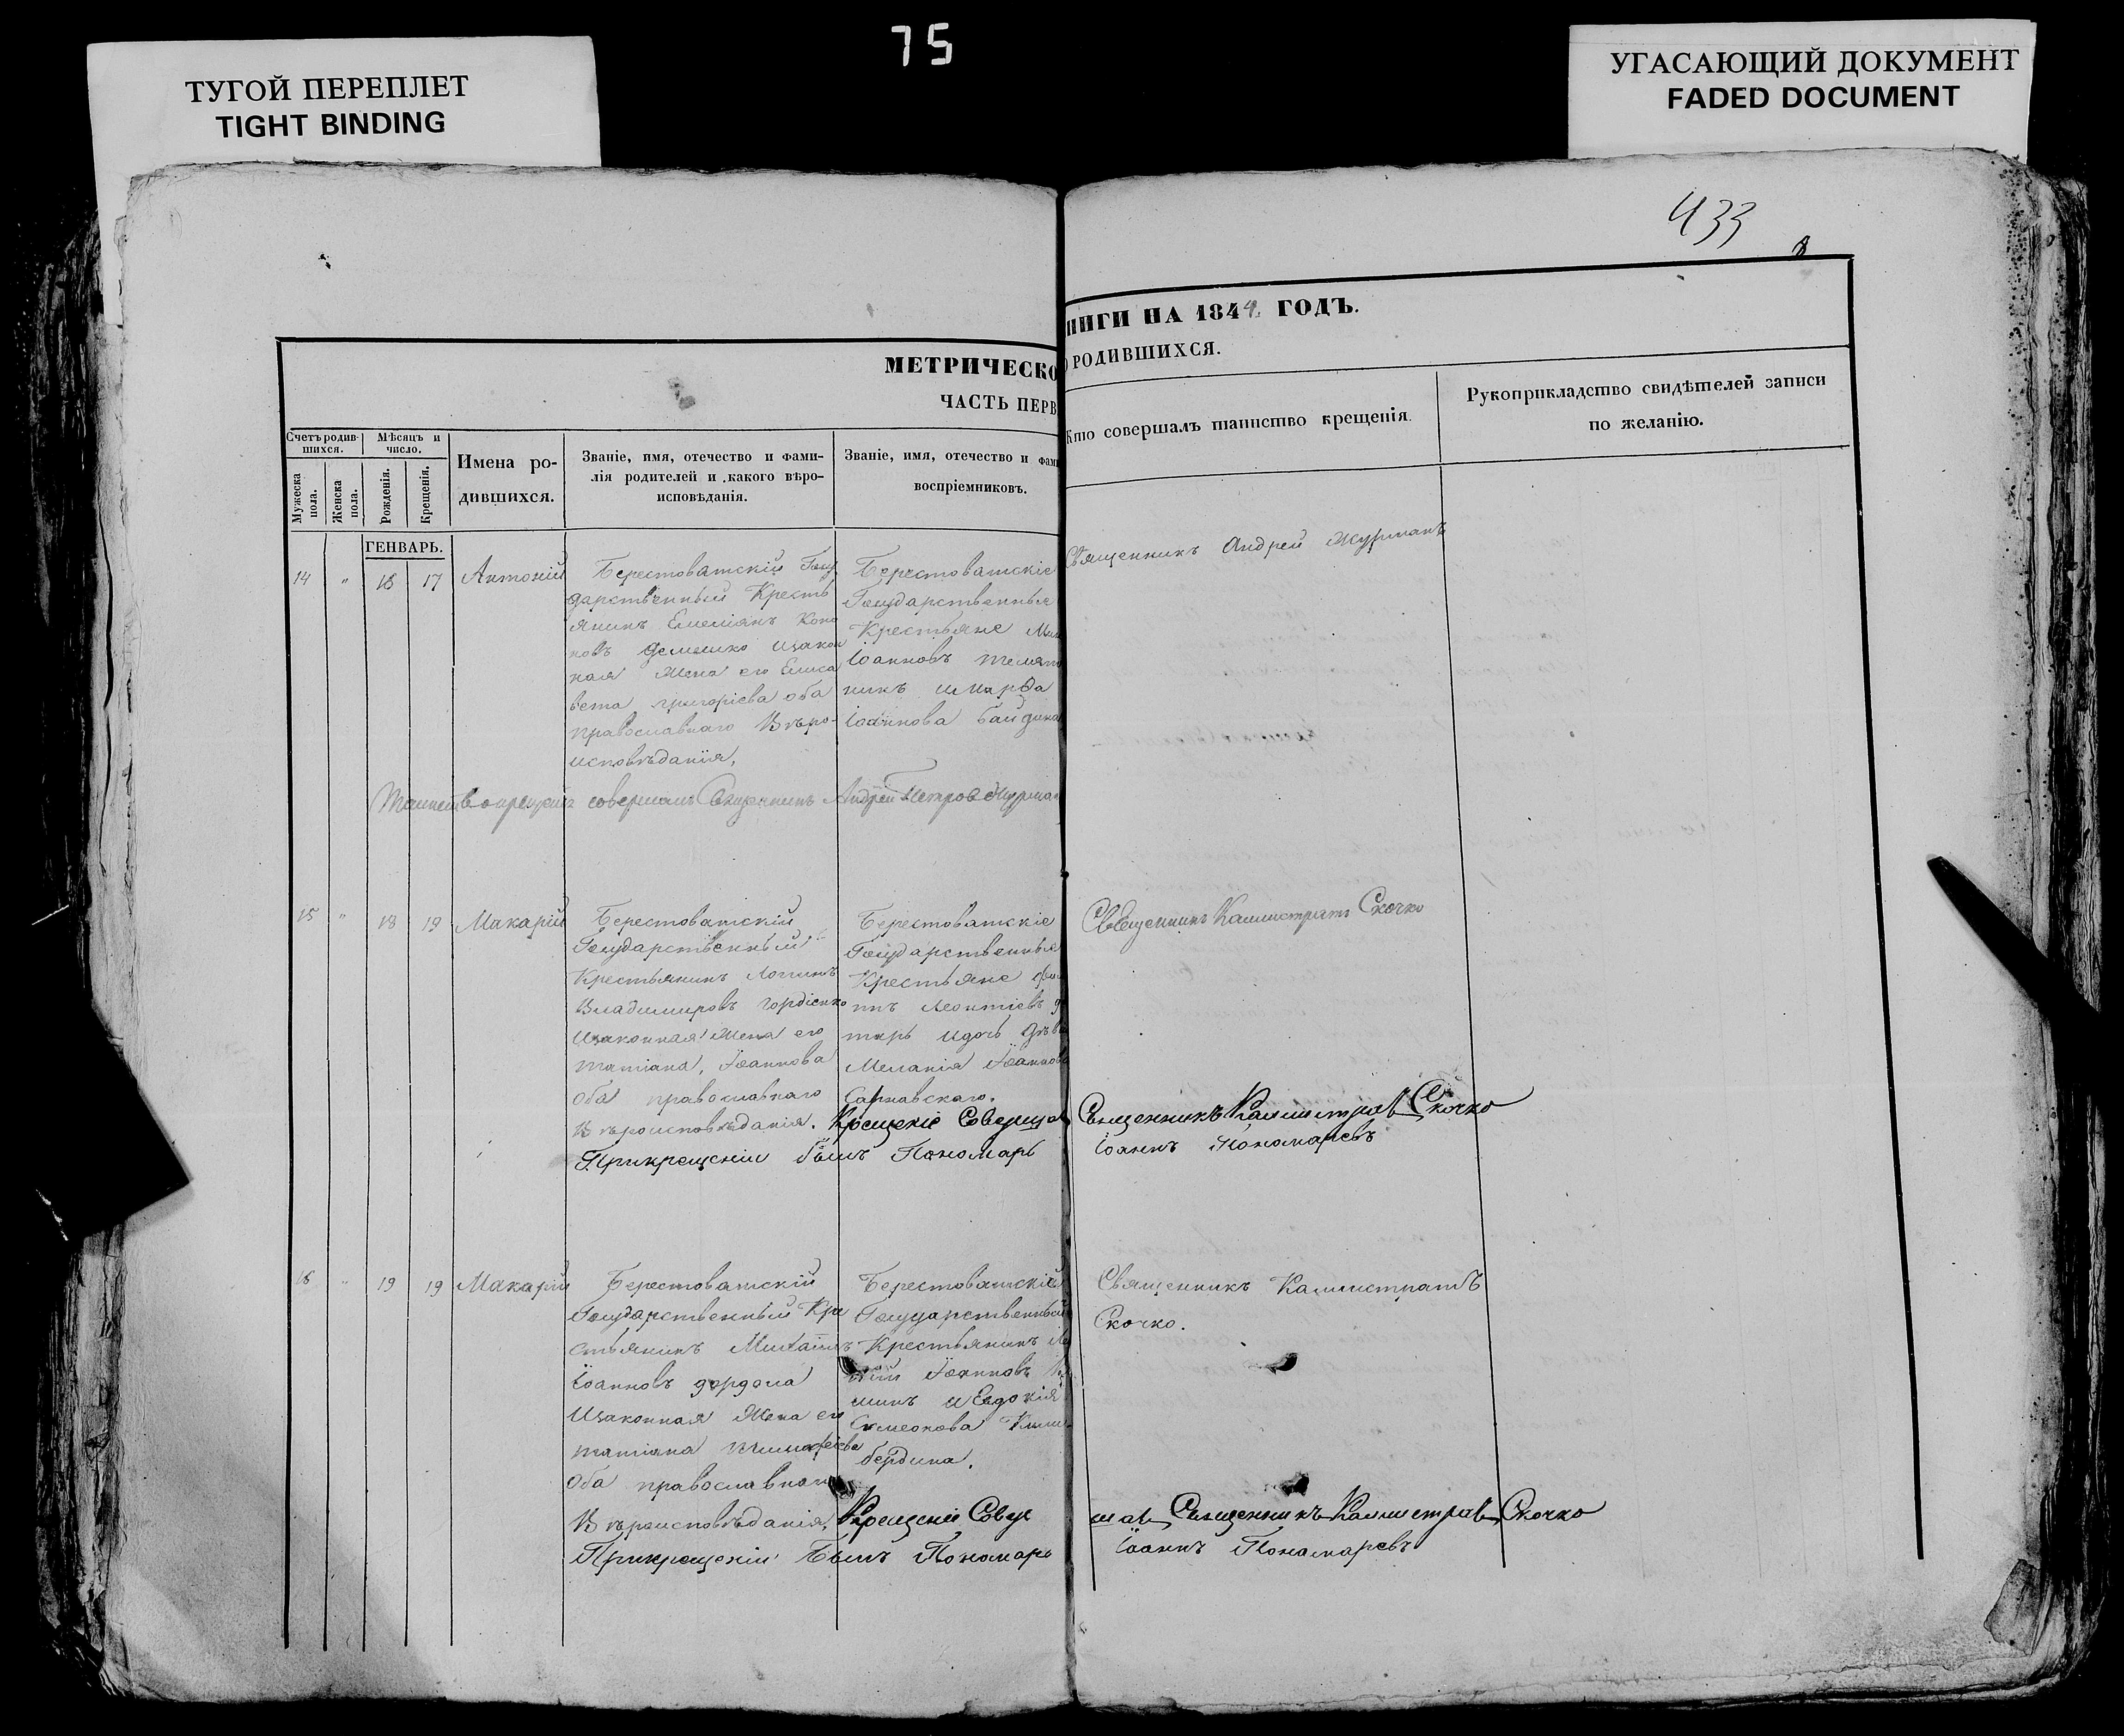 75
ТУГОЙ ПЕРЕПЛЕТ
TIGHT BINDING
УГАСАЮЩИЙ ДОКУМЕНТ
FADED DOCUMENT
433
МЕТРИЧЕСКО
ЧАСТЬ ПЕРВ
НИГИ НА 1844 ГОДЪ.
О РОДИВШИХСЯ.
Счетъ родившихся.
Мужеска пола.
Женска пола.
Мѣсяцъ и число.
Рожденія.
Крещенія.
Имена ро-
дившихся.
Званіе, имя, отечество и фами-
лія родителей и какого вѣро-
исповѣданія.
Званіе, имя, отечество и фами
воспріемниковъ.
Кто совершалъ таинство крещенія.
Рукоприкладство свидѣтелей записи
по желанію.
ГЕНВАРЬ.
14 " 16 17 Антоній
Берестоватскій Госу
дарственный Кресть
янинъ Емеліянъ Коно
новъ Демешко изакон
ная Жена его Елиса
вета григоріева оба
православнаго Вѣро-
исповѣданія,
Берестоватскіе
Государственныя
Крестьяне
Іоанновъ
никъ и Марфа
Іоаннова байдина
Священникъ Андрей Журманъ
Таинство крещенія совершалъ Священникъ Андрей Петровъ Журман
15 " 18 19 Макарій
Берестоватскій
Государственный
Крестьянинъ Логинъ
Владимировъ гордіенко
Изаконная Жена его
татіана, Іоаннова
оба православнаго
Вѣроисповѣданія.
Берестоватскіе
Государственныя
Крестьяне
Леонтіевъ
Меланія Іоаннова
Сарнавскаго.
Священникъ Каллистратъ Скочко
Крещеніе Соверша Священникъ Каллистрат Скочко
Прикрещеніи былъ Пономарь Іоаннъ Пономаревъ
16 " 19 19 Макарій
Берестоватскій
Государственный Кре
стьянинъ Михаилъ
Іоанновъ
Изаконная Жена его
татіана
Оба православнаго
Вѣроисповѣданія,
Берестоватскій
Государственный
Крестьянинъ
Іоанновъ
и Евдокія
Симеонова
бердина.
Священникъ Каллистратъ
Скочко.
Крещеніе Сове шал Священникъ Каллистрат Скочко
Прикрещеніи Былъ Пономарь Іоаннъ Пономаревъ